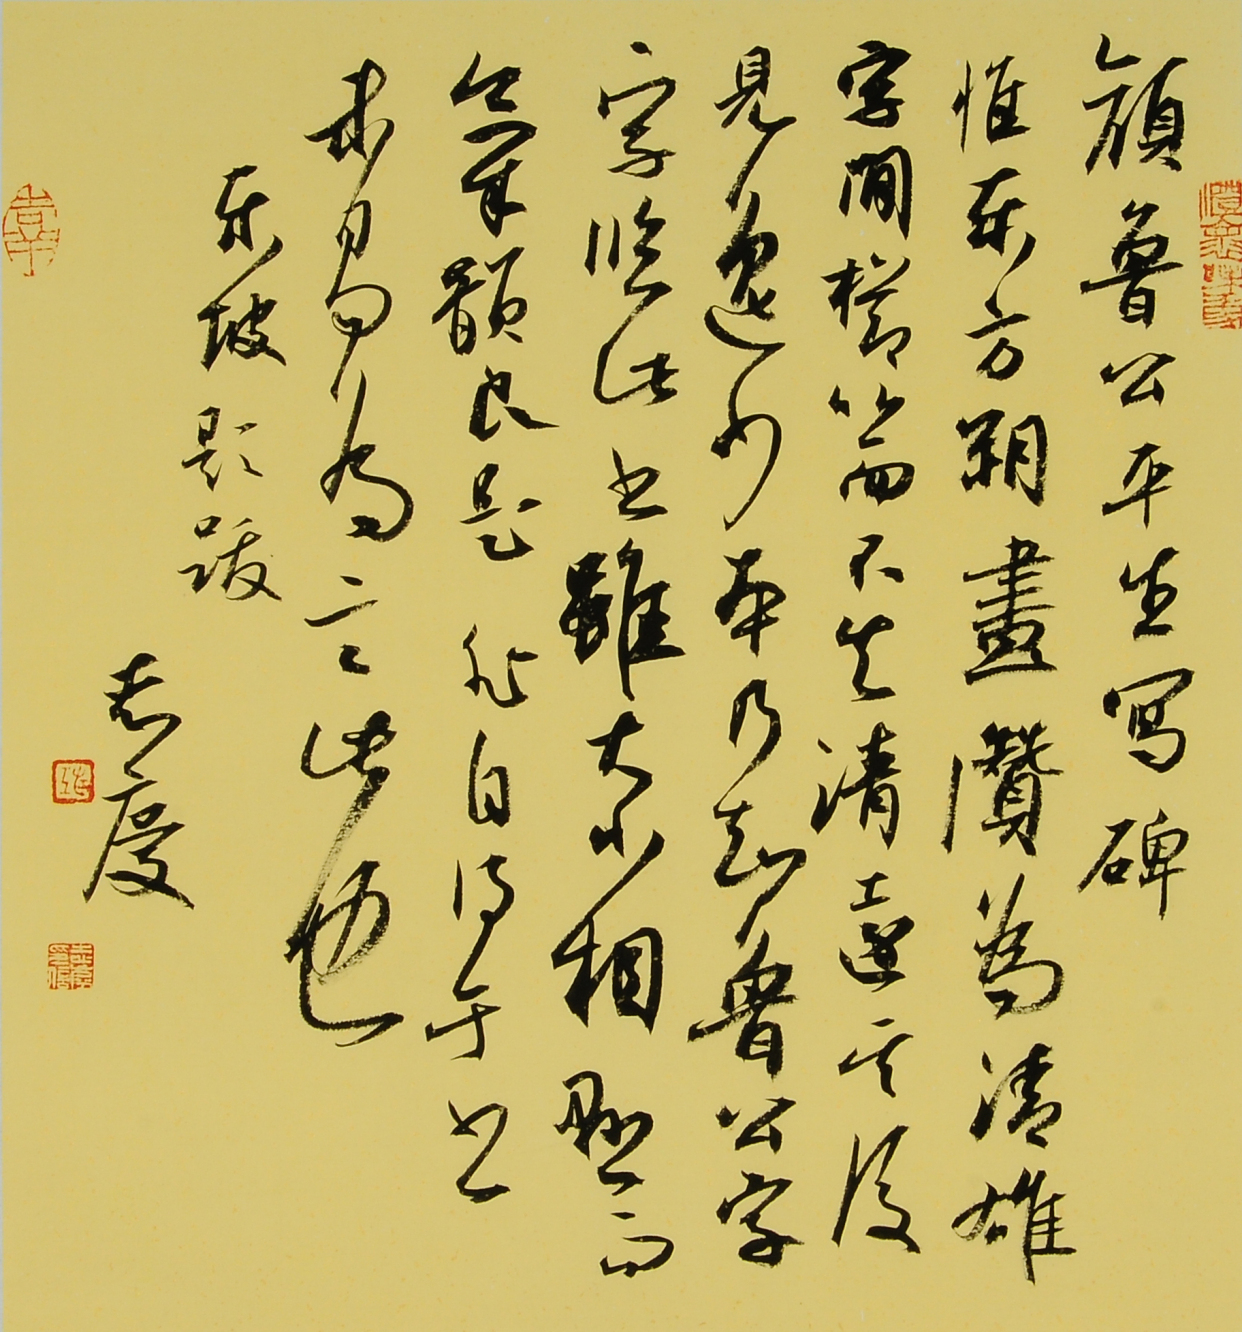 顔魯公平生寫碑
惟东方朔畫讚為清雄
字間櫛比而不失清遠其後
見逸少本乃知魯公字
字临此书雖大小相懸而
氣韻良是非自得于书
未易为言此也
东坡题跋
志慶